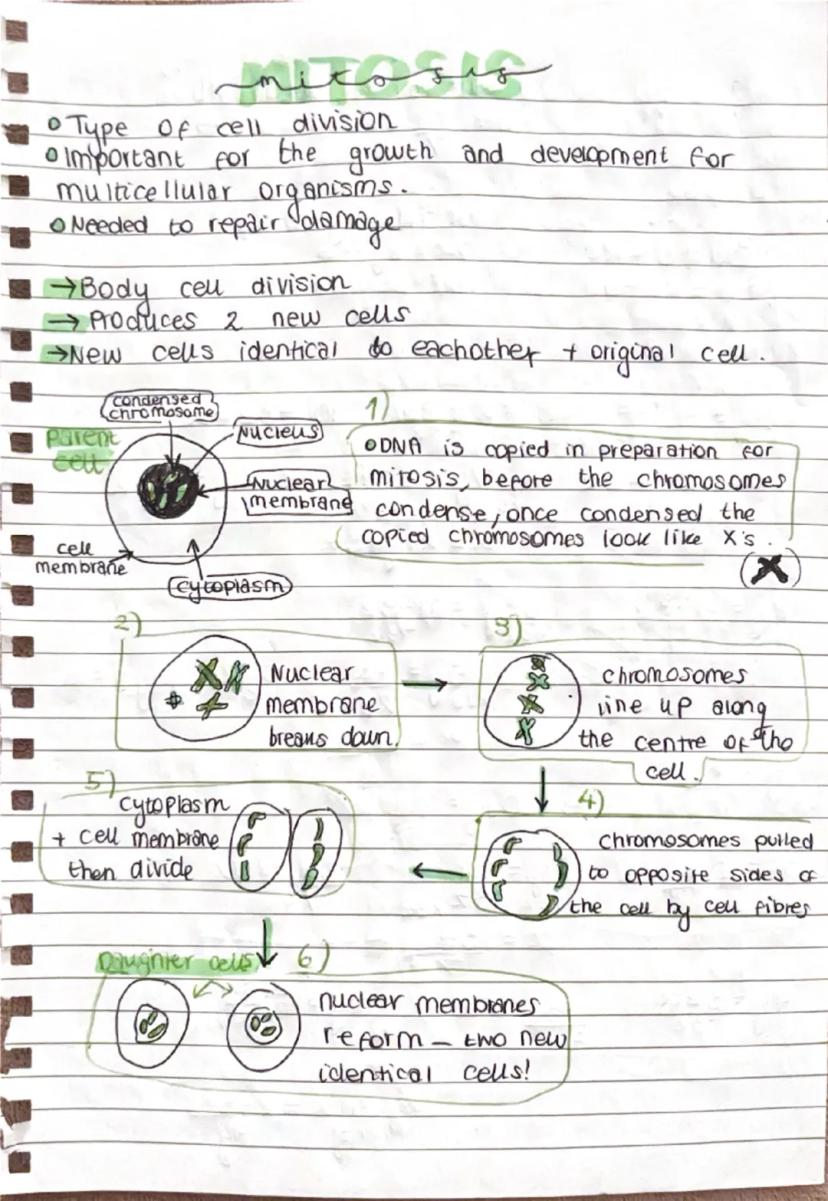 MITOSIS
mitosis
Type of cell division
Important for the growth and development for
multicellular organisms.
Needed to repair damage
→Body cell division
→ Produces 2 new cells
→New cells identical to eachother + original cell.
condensed
chromosome
Parent
cell
Nucleus
Nuclear
membrane
cell
membrane
cytoplasm
1)
DNA is copied in preparation for
mitosis, before the chromosomes
condense, once condensed the
copied chromosomes look like X's.
(X)
2)
Nuclear
membrane
breaks down.
3)
chromosomes
line up along
the centre of the
cell.
4)
chromosomes pulled
to opposite sides of
the cell by cell fibres
5)
cytoplasm
+ cell membrane
then divide
Daughter cells
6)
nuclear membranes
reform – two new
identical cells!